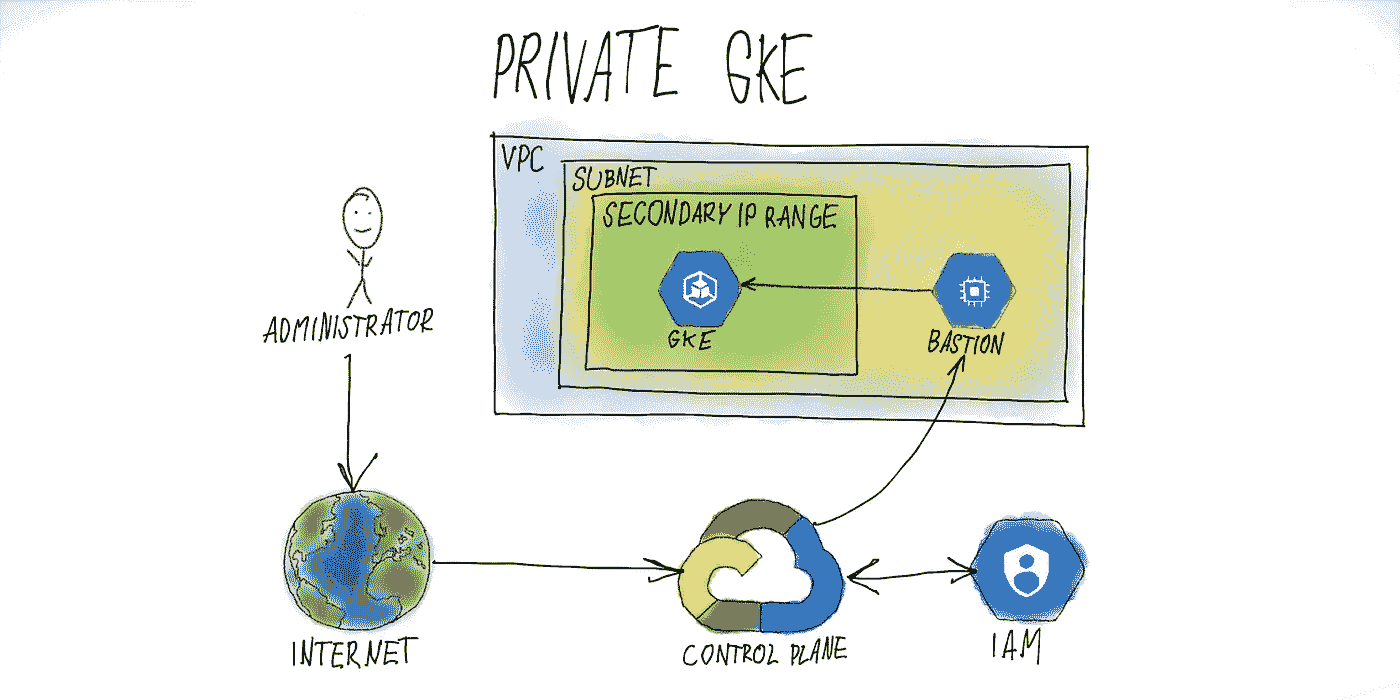 PRIVATE GKE
VPC
SUBNET
SECONDARY IP RANGE
GKE
BASTION
ADMINISTRATOR
INTERNET
CONTROL PLANE
IAM